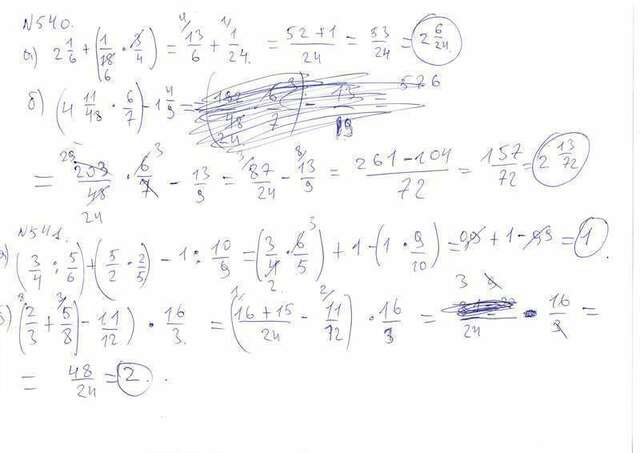 N540.
а) 2 1/6 + (1/18 6 · 3/4) = 4/ 13/6 + 1/ 1/24. = 52+1/24 = 53/24 = 2 6/24.
б) (4 11/48 · 6/7) - 1 4/9 =
= 29 203/48 24 · 6 3/7 - 13/9 = 3/ 87/24 - 8/ 13/9 = 261-104/72 = 157/72 = 2 13/72
N541.
(3/4 : 5/6) + (5/2 · 2/5) - 1 : 10/9 = (3/4 2. · 6 3/5) + 1 - (1 · 9/10) = 0,9 + 1 - 0,9 = 1.
(2/3 + 3/ 5/8) - 11/12) · 16/3. = (1/ 16+15/24 - 2/ 11/12) · 16/3 = 3/24 · 16/3 =
= 48/24 = 2.